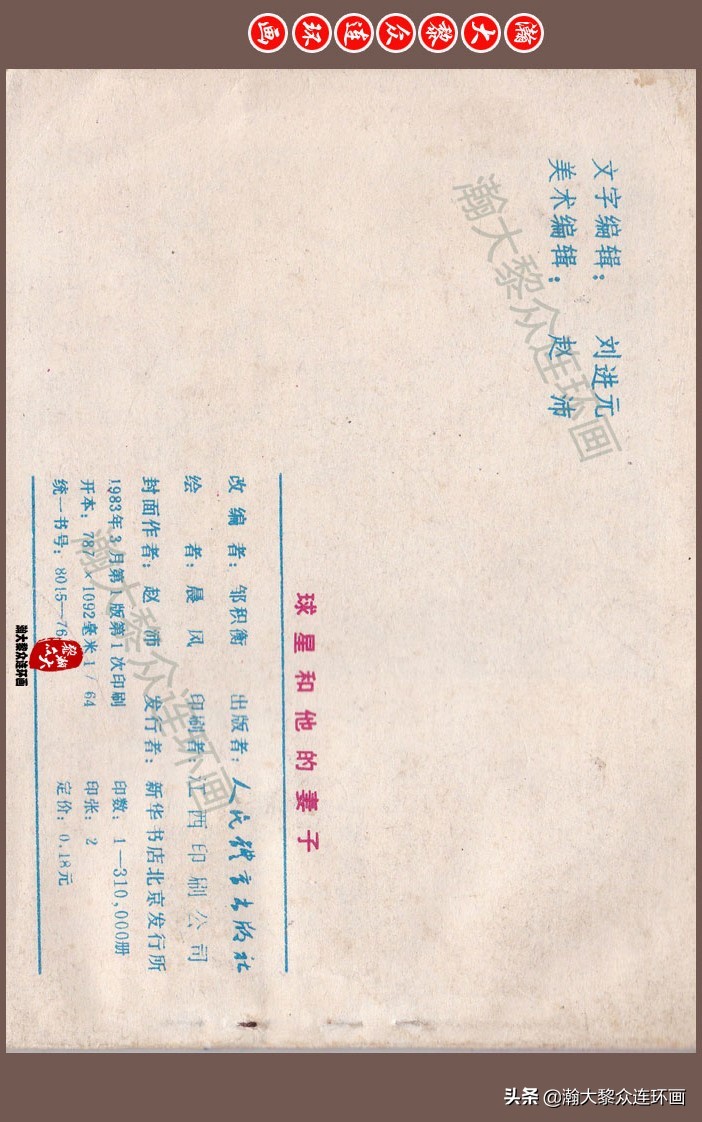 瀚大黎众连环画
文字编辑：刘进元
美术编辑：赵沛
瀚大黎众连环画
球星和他的妻子
改编者：邹积衡 出版者：人民体育出版社
绘者：晨风 印刷者：江西印刷公司
封面作者：赵沛 发行者：新华书店北京发行所
1983年3月第1版第1次印刷 印数：1—310,000册
开本：787×1092毫米1/64 印张：2
统一书号：8015—76 定价：0.18元
瀚大黎众连环画
瀚大黎众连环画
头条 @瀚大黎众连环画